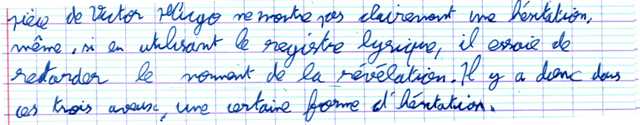 pièce de Victor Hugo ne montre pas clairement une hésitation,
même, si en utilisant le registre lyrique, il essaie de
retarder le moment de la révélation. Il y a donc dans
ces trois aveux, une certaine forme d'hésitation.